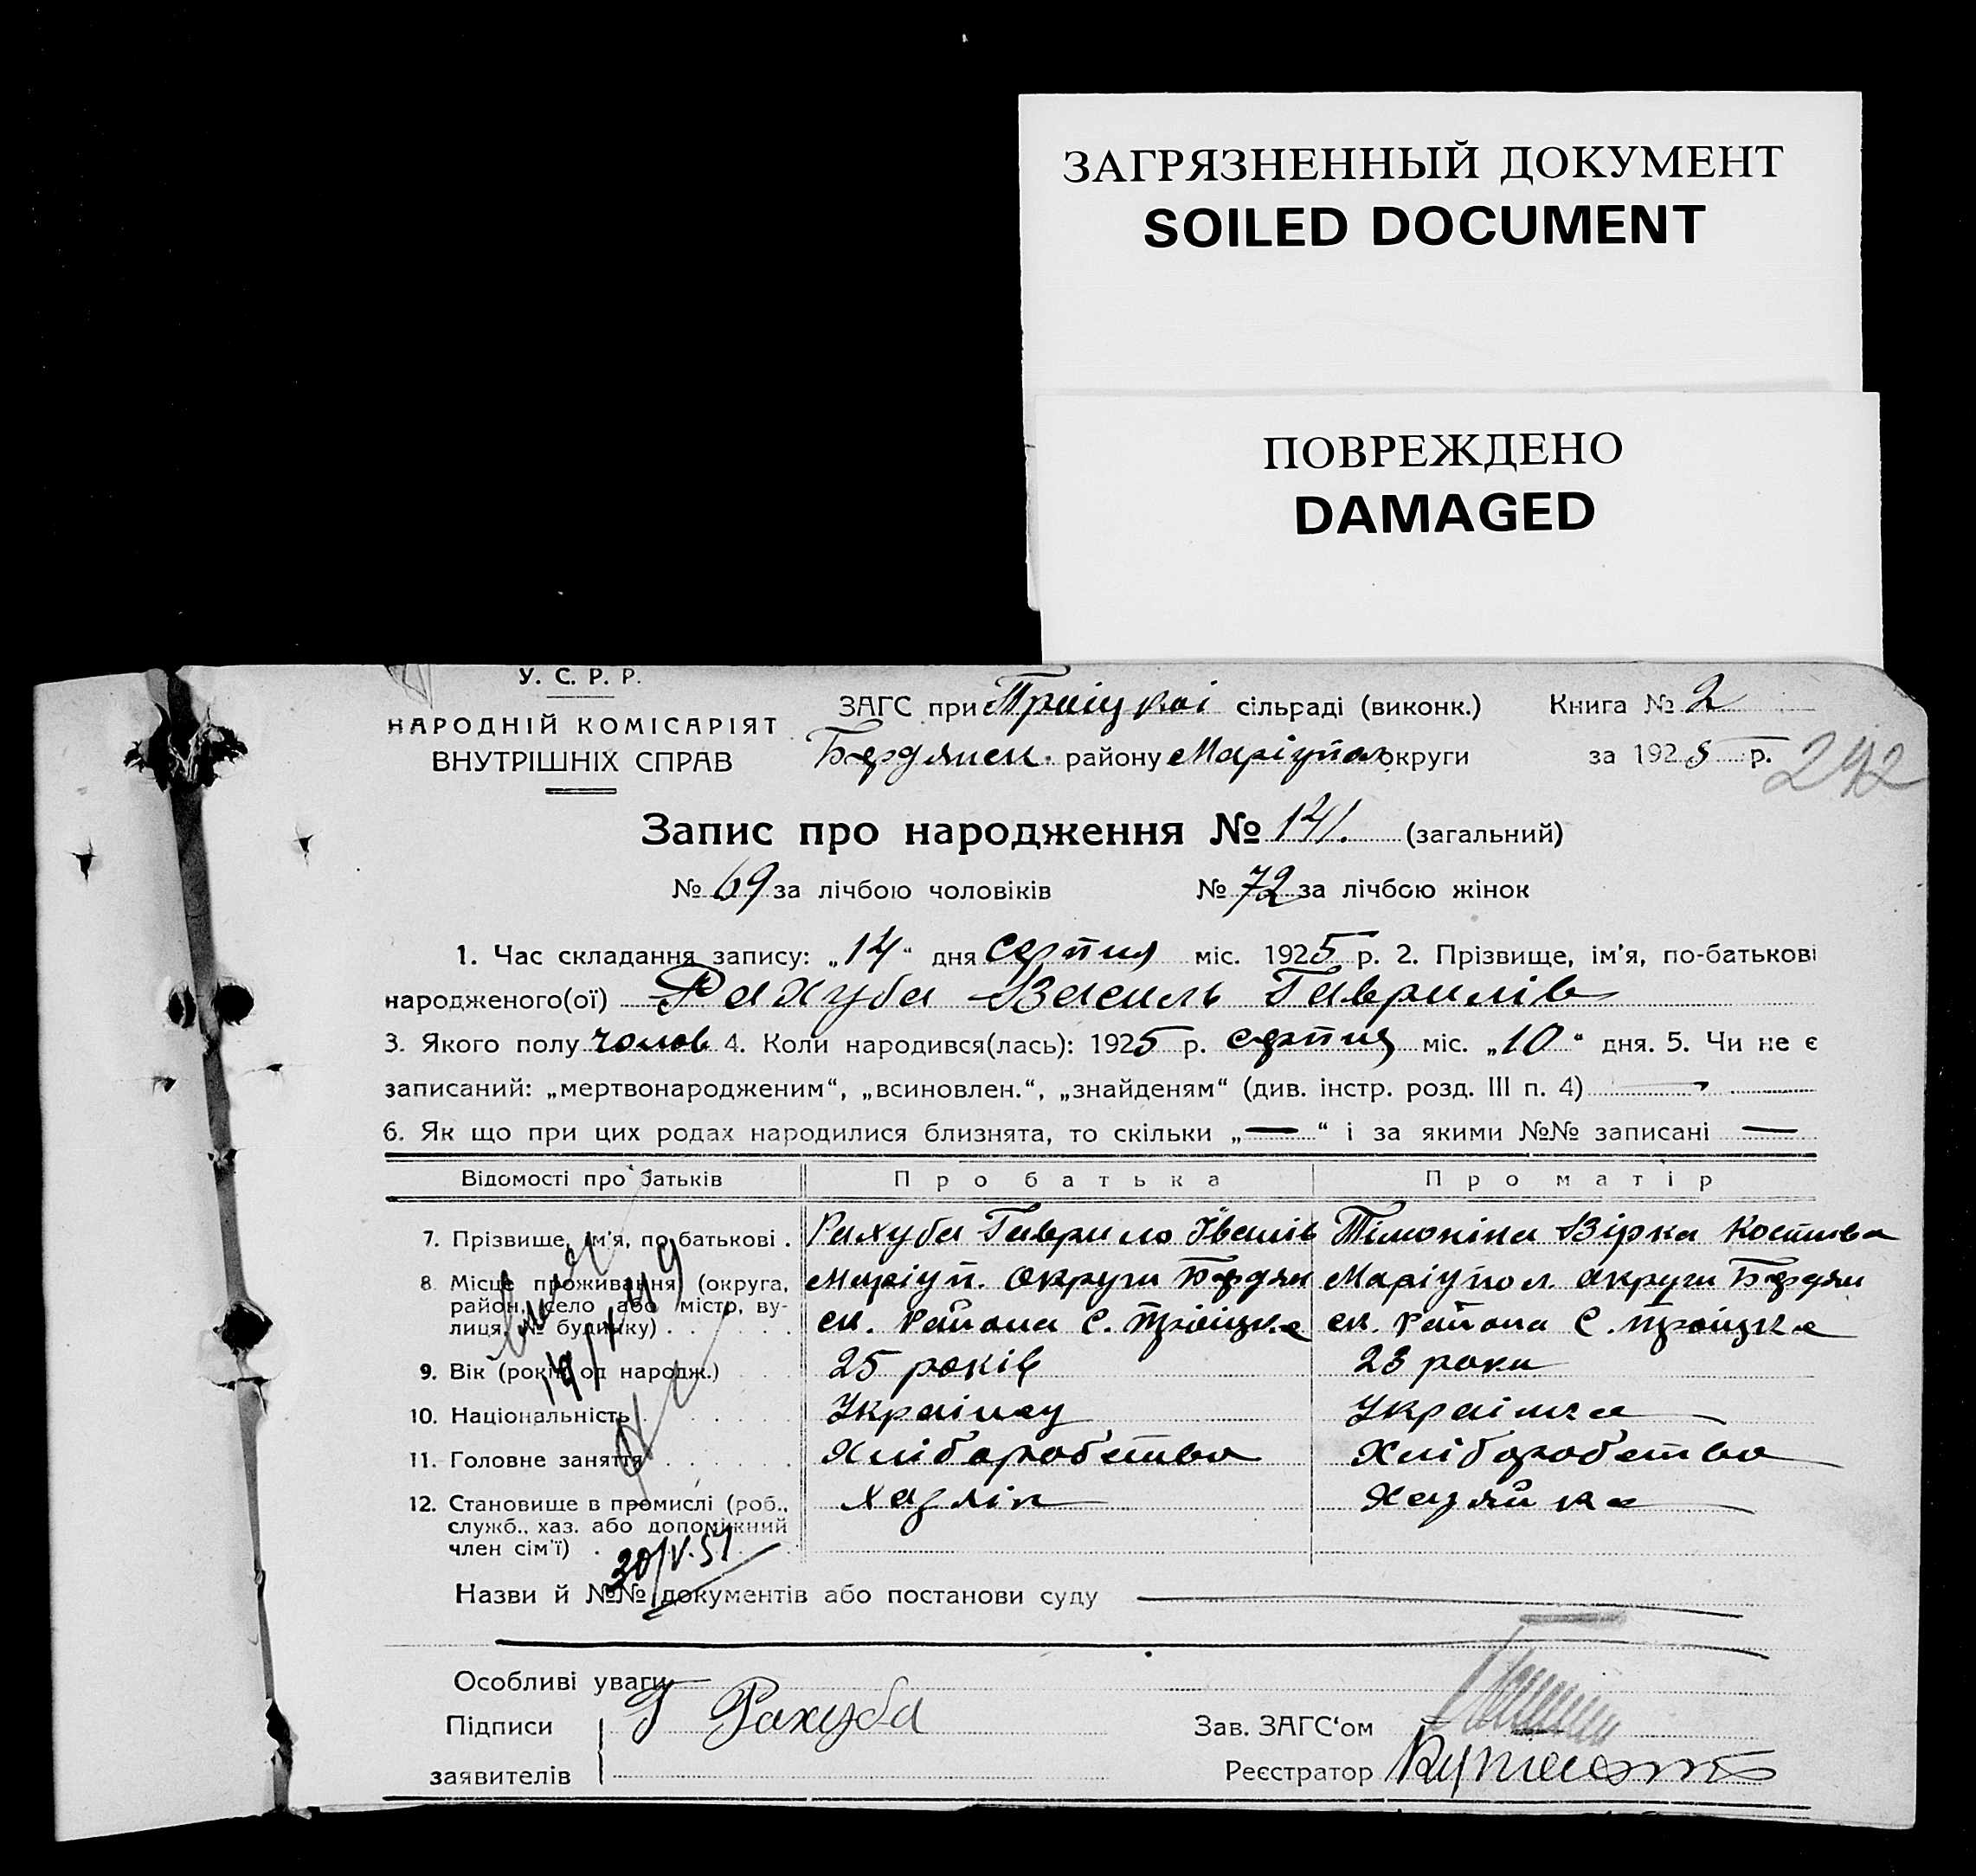 ЗАГРЯЗНЕННЫЙ ДОКУМЕНТ
SOILED DOCUMENT
ПОВРЕЖДЕНО
DAMAGED
У. С. Р. Р.
НАРОДНІЙ КОМІСАРІЯТ
ВНУТРІШНІХ СПРАВ
ЗАГС при Троіцкоі сільраді (виконк.) Книга № 2
Бердянск. району Маріупол округи за 1925 р.
242
Запис про народження № 141. (загальний)
№ 69 за лічбою чоловіків № 72 за лічбою жінок
1. Час складання запису: „14“ дня серпня міс. 1925 р. 2. Прізвище, ім'я, по-батькові
народженого(ої) Рахуба Василь Гаврилів
3. Якого полу чолов 4. Коли народився(лась): 1925 р. серпня міс. „10“ дня. 5. Чи не є
записаний: „мертвонародженим“, „всиновлен.“, „знайденям“ (див. інстр. розд. III п. 4) —
6. Як що при цих родах народилися близнята, то скільки „—“ і за якими №№ записані —
Відомості про батьків Про батька Про матір
7. Прізвище, ім'я, по-батькові . Рахуба Гаврило Іванів Тімошіна Вірка Костива
8 Місце проживання (округа, Маріуп. округи Бердян Маріупол. округи Бердян
район, село або місто, ву- ск. Района С. Троіцке ск. Района С. Троіцке
лиця, № будинку) . . .
9. Вік (років од народж.) 25 років 23 роки
10. Національність . . . Украінец Украінка
11. Головне заняття . . . Хліборобство Хліборобство
12. Становище в промислі (роб., Хазяін Хазяйка
служб., хаз. або допоміжний
член сім'ї) .
19/X 49
30/V.51
Назви й №№ документів або постанови суду —
Особливі уваги
Підписи Г Рахуба Зав. ЗАГС‘ом
заявителів Реєстратор